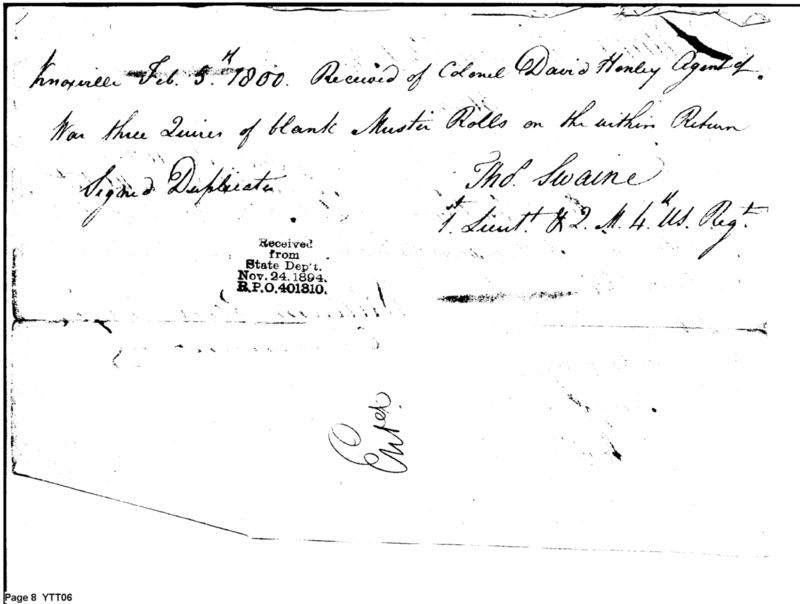 Knoxville Feb. 5.th 1800. Received of Colonel David Henley Agent of
War three Quires of blank Muster Rolls on the within Return
Signed Duplicates
Thos. Swaine
1st. Lieut. & Q. M. 4.th US. Regt.
Received
from
State Dep't.
Nov. 24. 1894.
R.P.O. 401310.
Page 8 YTT06